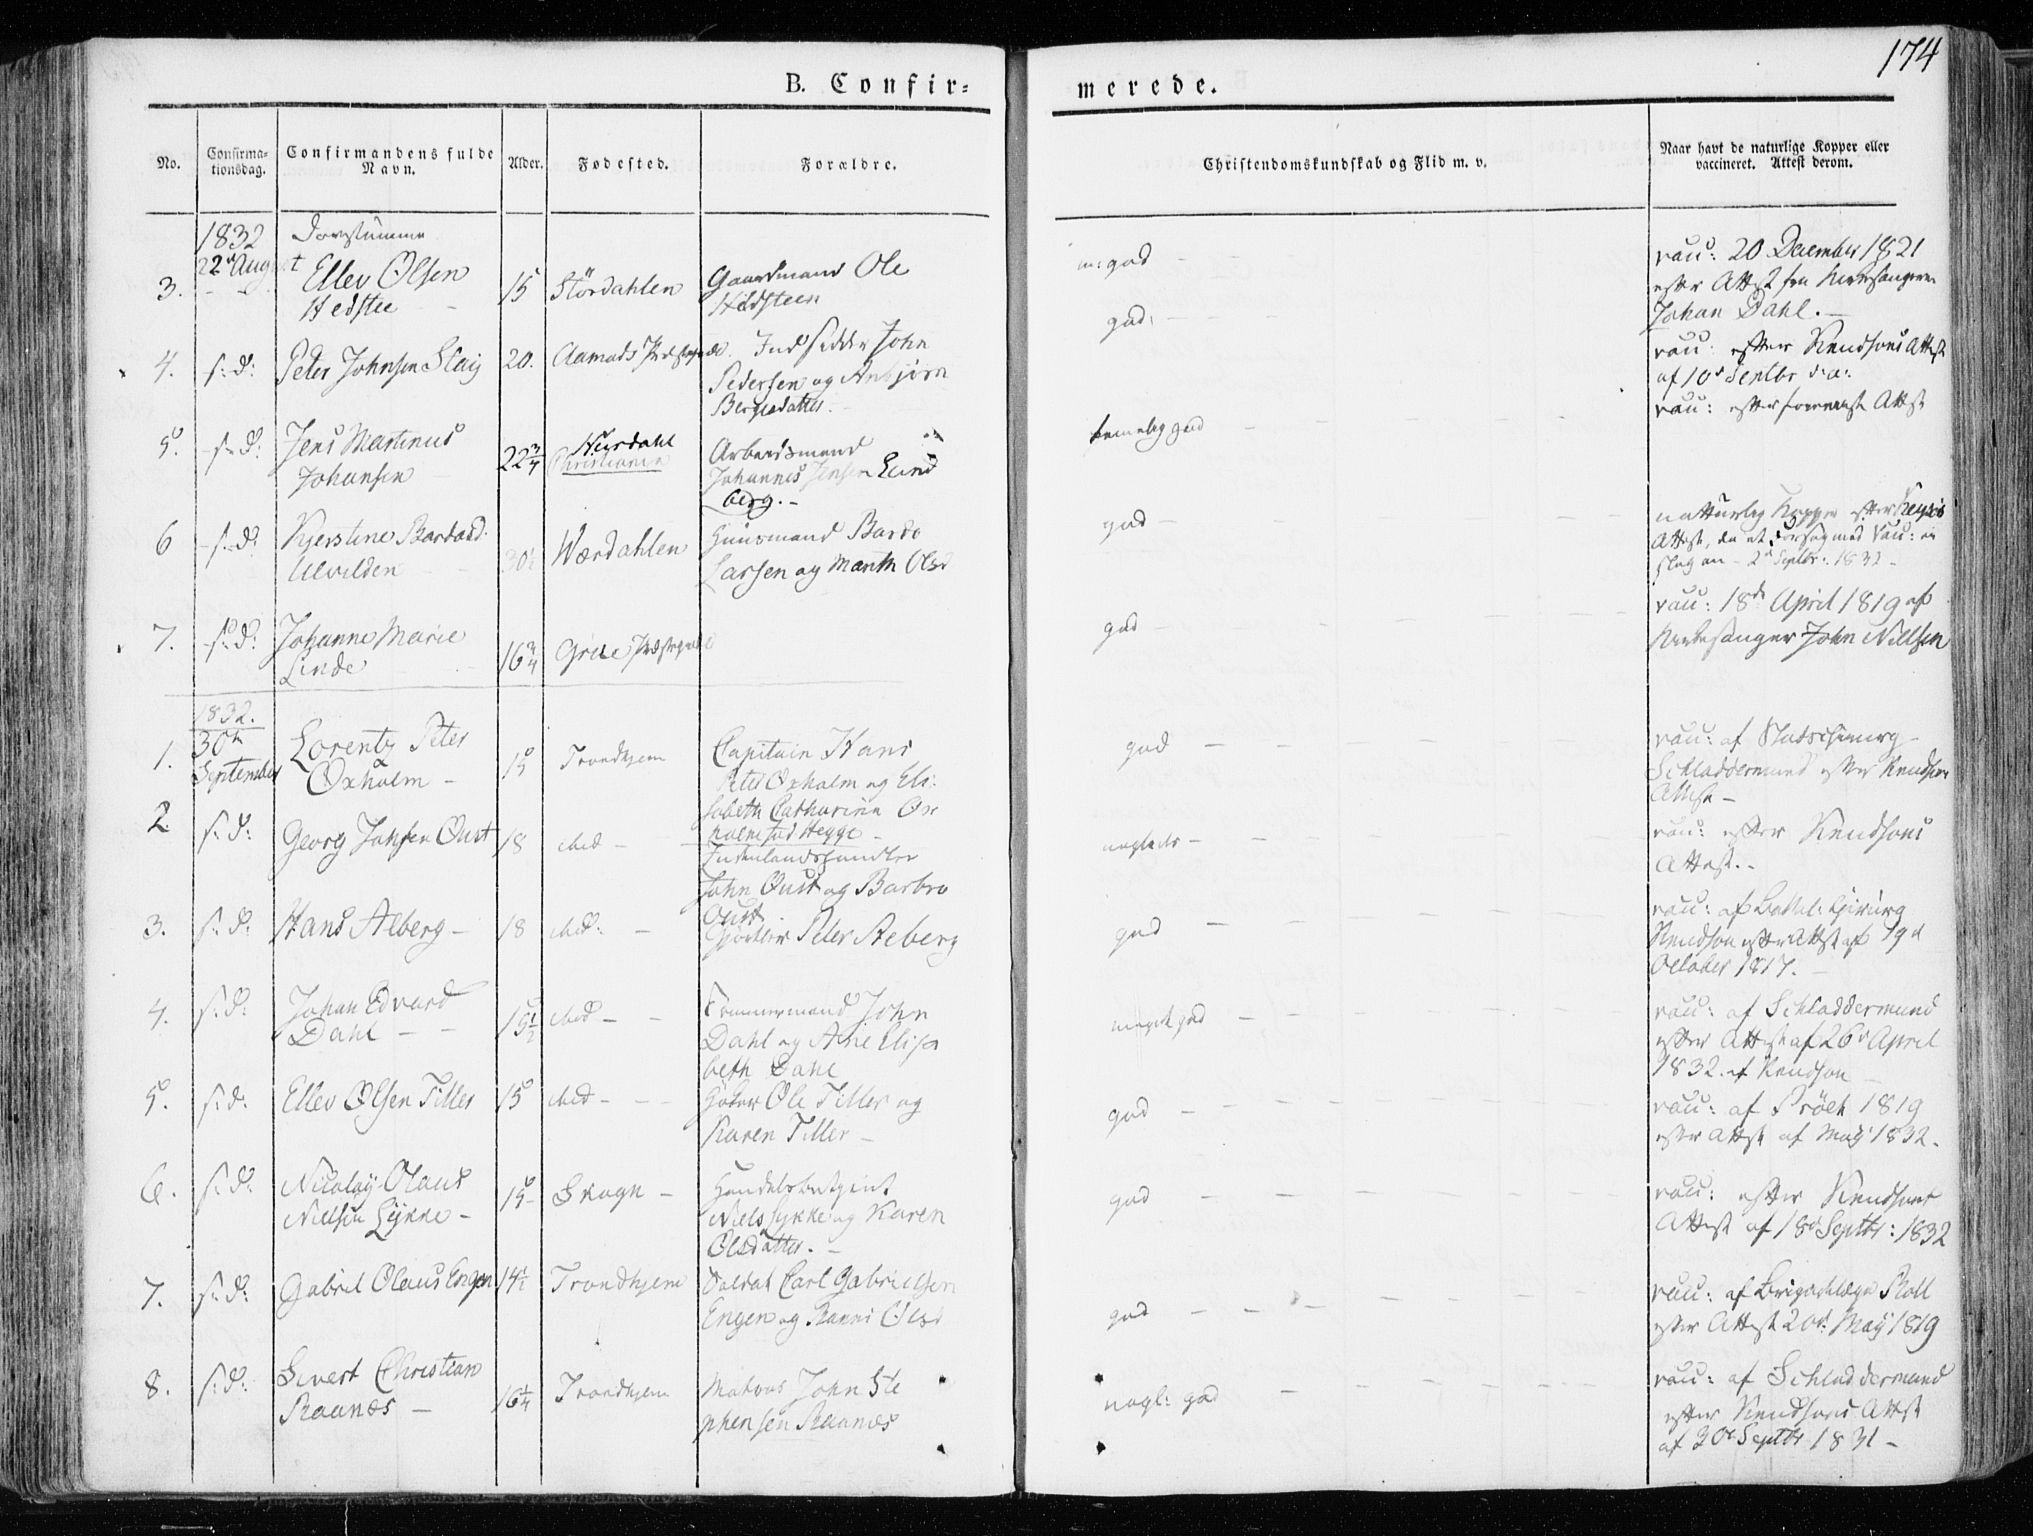 174
B. Confir=
merede.
No.
Confirma-
tionsdag.
Confirmandens fulde
Navn.
Alder.
Fødested.
Forældre.
Christendomskundskab og Flid m. v.
Naar havt de naturlige Kopper eller
vaccineret. Attest derom.
1832
22d August
Døvstumme
3.
Ellev Olsen
Hedstee
15
Størdahlen
Gaardmand Ole
Hildsteen
m: god
god
vacc: 20 December 1821
efter Attest fra Kirkesangeren
Johan Dahl.
4. s: d: Peter Johnsen Slaig 20. Aamods Præstegield. Indsidder John
Pedersen og Anbjørn
Bergesdatter.
vacc: efter Knudsons Attest
af 10d Septbr d: a:
5. s: d: Jens Martinus
Johansen
22 3/4
Hurdahl
Christiania
Arbeidsmand
Johannes Jensen Lund
berg.
temelig god
vacc: efter foreviist Attest
6 s: d: Kjerstine Bardosd.
Ulvilden
30 1/2
Værdahlen
Huusmand Bardo
Larsen og Marith Olsd
god
naturlig Kopper efter
Attest, da et Forsøg med Vacc: ei
slog an - 2d Septbr: 1832
7. s: d: Johanne Marie
Linde
16 3/4
Grue Præstegield
god
vacc: 18de April 1819 af
Kirkesanger John Nillsen
1832.
30te
September
1.
Lorentz Peter
Oxholm
15
Trondhjem
Capitain Hans
Peter Oxholm og Eli:
sabeth Catharina Ox
holm fød Hegge
god
vacc: af Stadschirurg
Schladdermund efter Knudsons
Attest
2. s: d: Georg Johsen Oust 18 ibid
Indenlandshandler
John Oust og Barbro
Oust
nogledes
vacc: efter Knudsons
Attest.
3. s: d: Hans Aeberg 18 ibid:
Gjørtler Peter Aeberg
god
vacc: af Battal: Chirurg
Knudson efter Attest af 19d
October 1817.
4. s: d: Johan Edvard
Dahl
15 1/2
ibid
Tømmermand John
Dahl og Ane Elisa
beth Dahl
meget god
vacc: af Schladdermund
efter Attest af 26d April
1832 af Knudson
5. s: d: Ellev Olsen Tiller 15 ibid
Høker Ole Tiller og
Karen Tiller
god
vacc: af 1819
efter Attest af May 1832.
6. s: d: Nicolay Olaus
Nillsen Lykke
15
Skogn
Handelsbetjent
Niels Lykke og Karen
Olsdatter.
god
vacc: efter Knudsons
Attest af 18d Septbr: 1832
7. s: d: Gabriel Olaus Engen 14 1/2 Trondhjem
Soldat Carl Gabrielsen
Engen og Olsd
god
vacc: af Brigadelæge Moll
efter Attest 20d: May 1819
8. s: d: Sivert Christian
Raanæs
16 1/4
Trondhjem
Matros John Ste
phensen Raanæs
nogl: god
vacc: af Schladdermund
efter Knudsons Attest
af 30 Septbr 1831